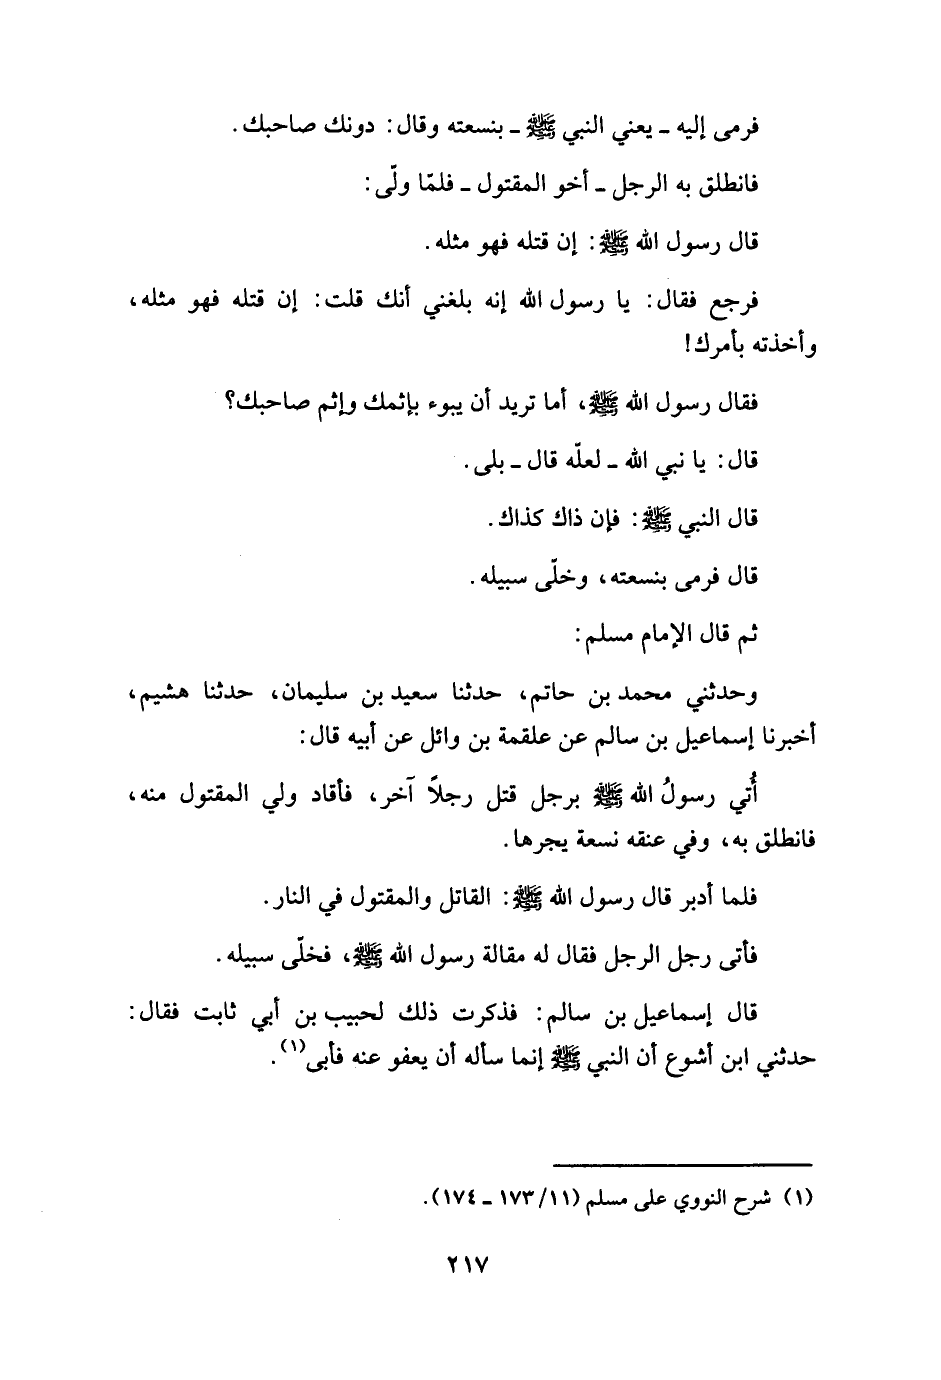 فرمى إليه ـ يعني النبي ﷺ ـ بنسعته وقال: دونك صاحبك.
فانطلق به الرجل ـ أخو المقتول ـ فلمّا ولّى:
قال رسول الله ﷺ: إن قتله فهو مثله.
فرجع فقال: يا رسول الله إنه بلغني أنك قلت: إن قتله فهو مثله،
وأخذته بأمرك!
فقال رسول الله ﷺ، أما تريد أن يبوء بإثمك وإثم صاحبك؟
قال: يا نبي الله ـ لعلّه قال ـ بلى.
قال النبي ﷺ: فإن ذاك كذاك.
قال فرمى بنسعته، وخلّى سبيله.
ثم قال الإمام مسلم:
وحدثني محمد بن حاتم، حدثنا سعيد بن سليمان، حدثنا هشيم،
أخبرنا إسماعيل بن سالم عن علقمة بن وائل عن أبيه قال:
أُتي رسولُ الله ﷺ برجل قتل رجلاً آخر، فأقاد ولي المقتول منه،
فانطلق به، وفي عنقه نسعة يجرها.
فلما أدبر قال رسول الله ﷺ: القاتل والمقتول في النار.
فأتى رجل الرجل فقال له مقالة رسول الله ﷺ، فخلّى سبيله.
قال إسماعيل بن سالم: فذكرت ذلك لحبيب بن أبي ثابت فقال:
حدثني ابن أشوع أن النبي ﷺ إنما سأله أن يعفو عنه فأبى(١).
(١) شرح النووي على مسلم (١١/ ١٧٣ ـ ١٧٤).
٢١٧